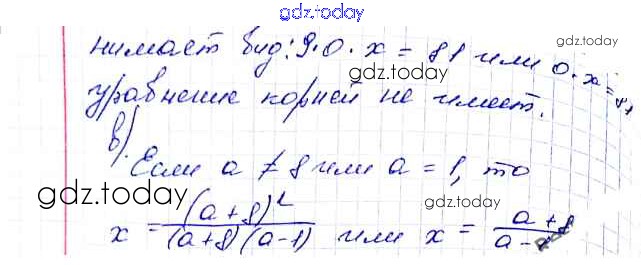 gdz.today
нимает вид: 9·0·x = 81 или 0·x = 81
gdz.today
gdz.today
уравнение корней не имеет.
в)
Если a ≠ 8 или a = 1, то
gdz.today
gdz.today
x = (a+8)² / (a+8)(a-1) или x = a+8 / a-